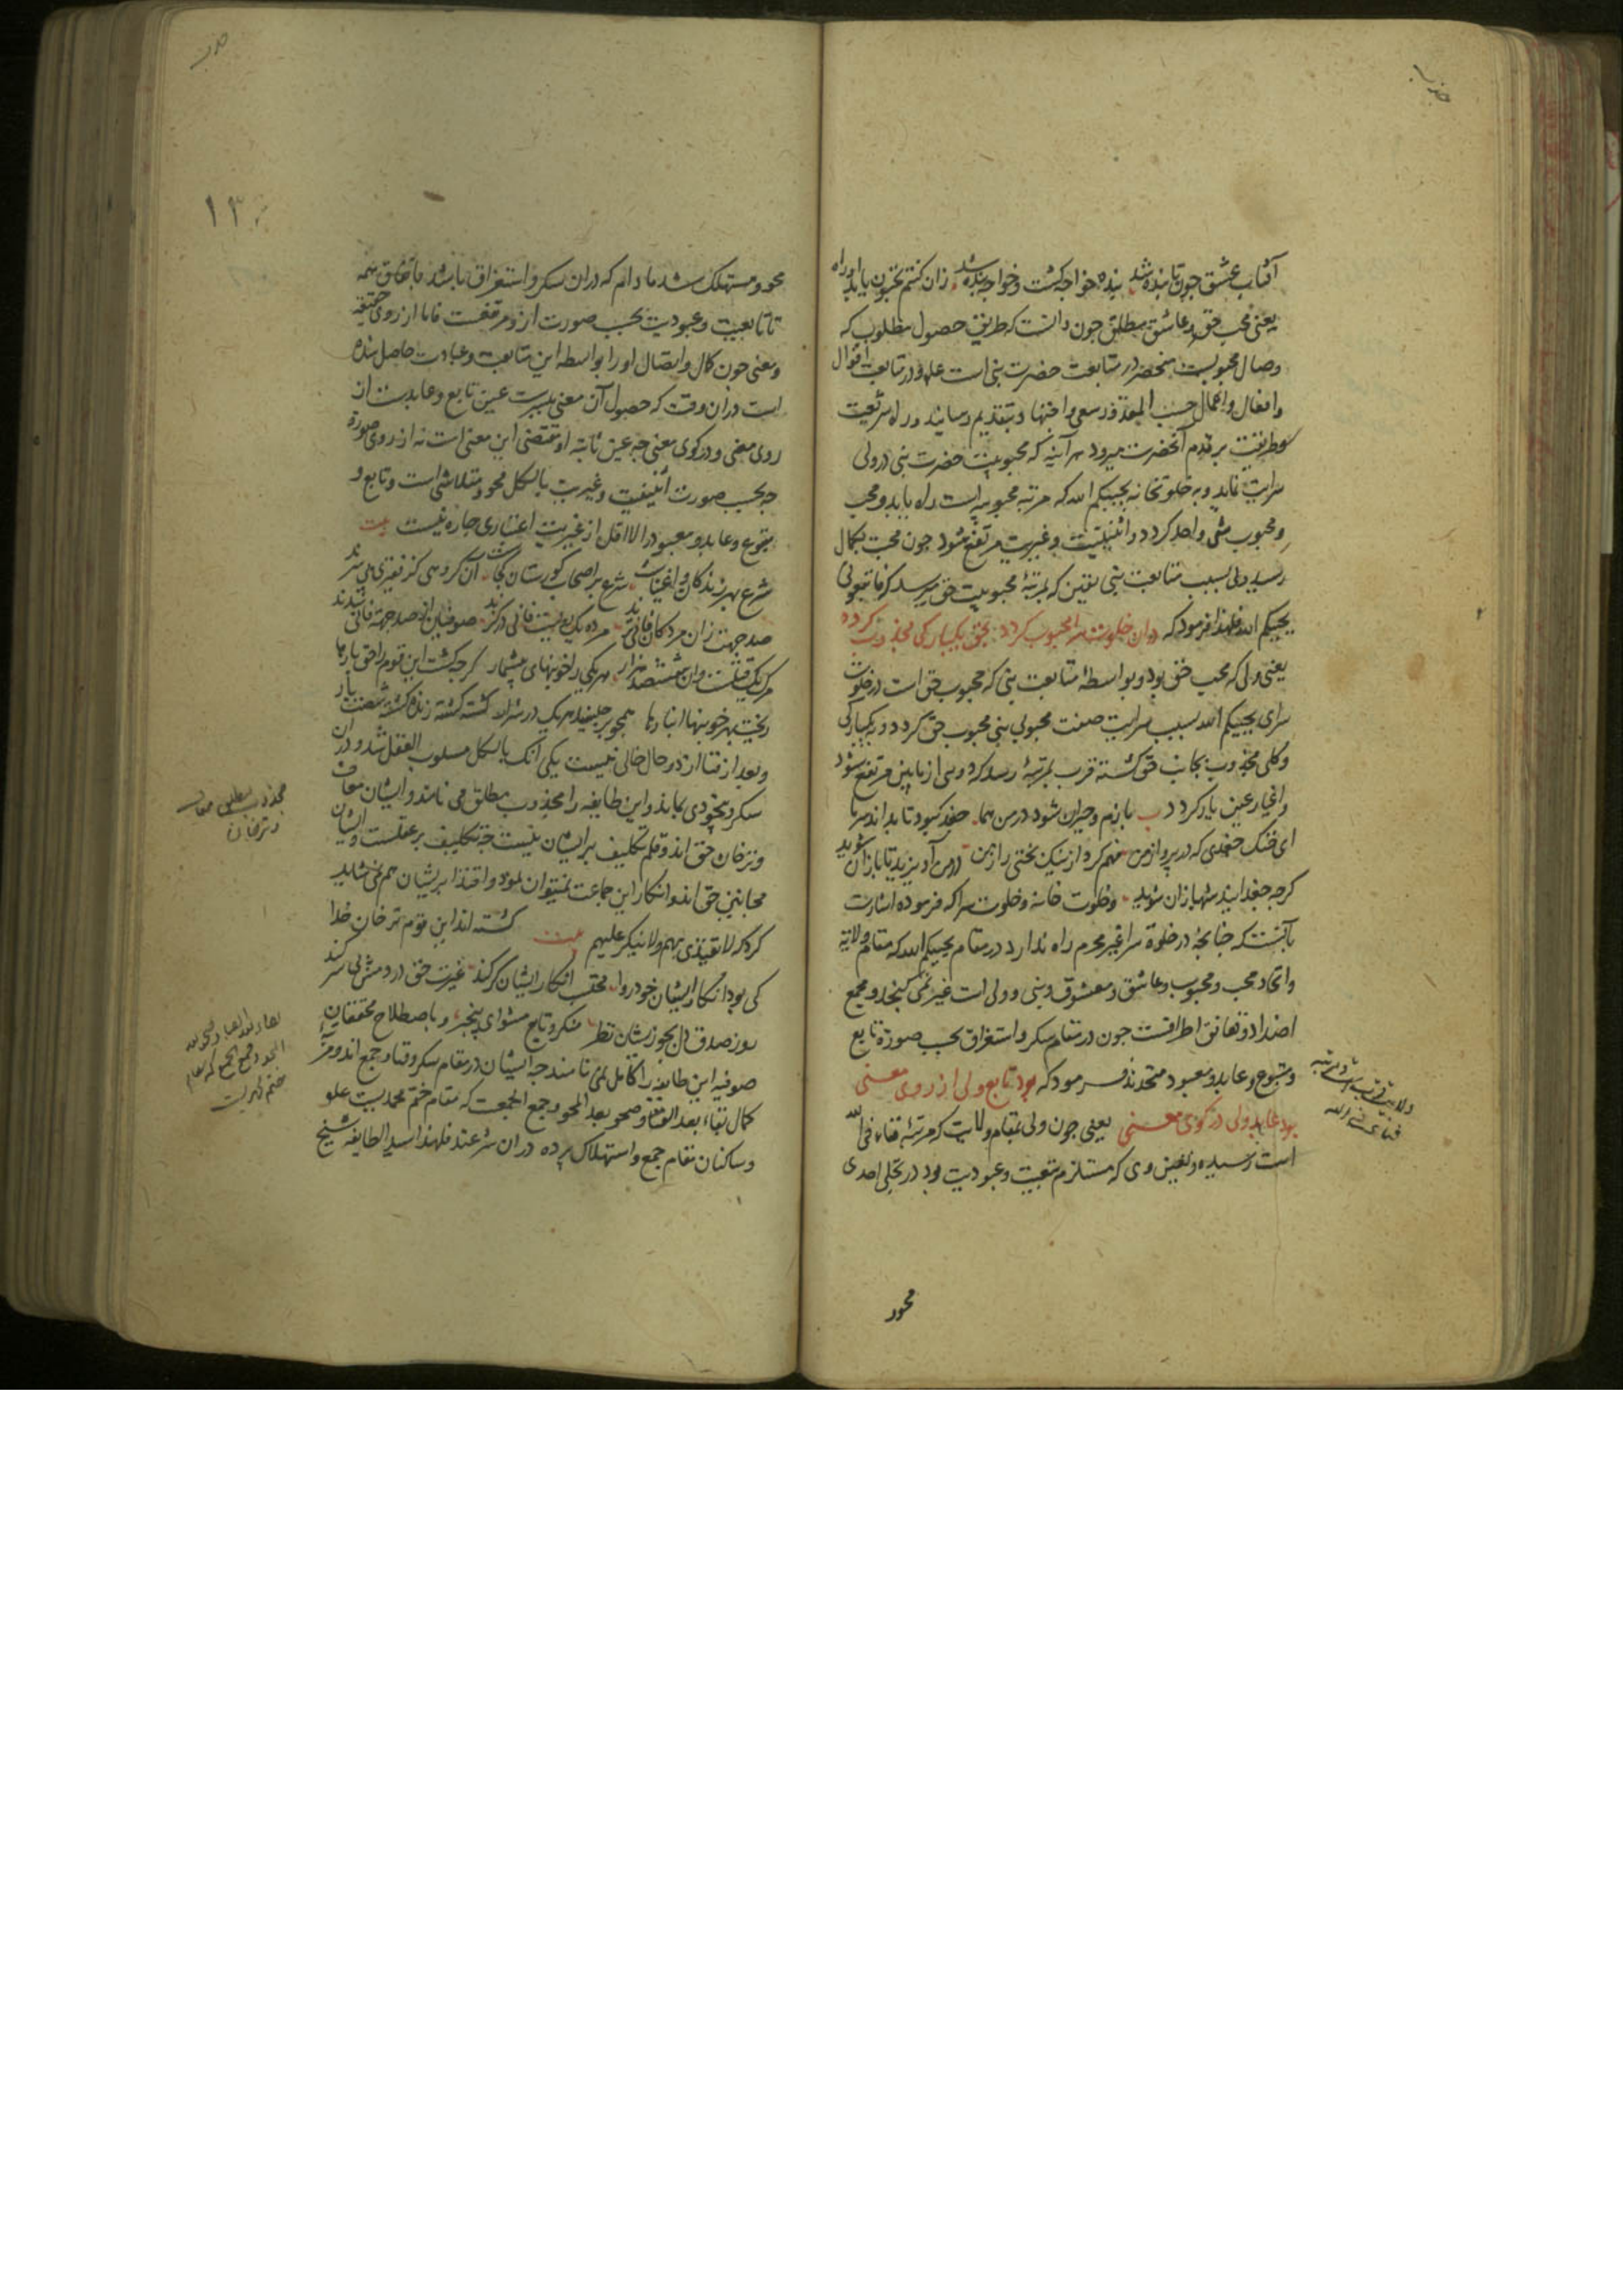 آفتاب عشق چون تابنده شد بنده خواجه کشت و خواجه بنده شد زان کنتم تحبون یابد او راه
یعنی محب حق و عاشق مطلق چون دانست که طریق حصول مطلوب که
وصال محبوبست منحصر در متابعت حضرت نبی است علیه و در متابعت اقوال
و افعال و اعمال حسب المقدور سعی و اجتهاد بتقدیم رساند و در راه شریعت
و طریقت بر قدم آنحضرت میرود هر آینه که محبوبیت حضرت نبی در ولی
سرایت نماید و به خلوتخانه یحببکم الله که مرتبه محبوبیه است راه یابد و محب
و محبوب شی واحد کردد و اثنینیت و غیریت مرتفع شود چون محبت بکمال
رسید ولی بسبب متابعت نبی یقین که بمرتبهٔ محبوبیت حق میرسد که فاتبعونی
یحببکم الله فلهذا فرمود که در آن خلوت سرا محبوب کردد بحق یکبارکی مجذوب کردد
یعنی ولی که محب حق بود و بواسطهٔ متابعت نبی که محبوب حق است در خلوت
سرای یحببکم الله بسبب سرایت صفت محبوبی نبی محبوب حق کردد و یکبارکی
و کلی مجذوب بجانب حق کشته قرب بمرتبهٔ رسد که دوی از مابین مرتفع شود
و اغیار عین یار کردد ب بازم و حیران شود در من هما جغد کبود تا بداند سر ما
ای خنک جغدی که در پرواز من فهم کرد از نیک بختی راز من در من آویزید تا بازان شوید
کرچه جغدانید شهبازان شوید و خلوت خانه و خلوت سرا که فرموده اشارت
بآنست که چنانچه در خلوة سرا غیر محرم راه ندارد در مقام یحببکم الله که مقام ولایة
و اتحاد محب و محبوب و عاشق و معشوق و نبی و ولی است غیر نمی کنجد و مجمع
اضداد و تعانق اطرافست چون در مقام سکر و استغراق بحسب صورة تابع
و متبوع و عابد و معبود متحدند فرمود که بود تابع ولی از روی معنی
بود عابد ولی در کوی معنی یعنی چون ولی بمقام ولایت که مرتبهٔ فناء فی الله
است رسیده و تعین وی که مستلزم تبعیت و عبودیت بود در تجلی احدی
محو و
۱۳۰
محو و مستهلک شد مادام که در آن سکر و استغراق باشد باتفاق همه
تابعیت و عبودیت بحسب صورت ازو مرتفعست فاما از روی حقیقة
و معنی چون کمال و اتصال او را بواسطه این متابعت و عبادت حاصل شده
است در آن وقت که حصول آن معنی میسرست عین تابع و عابدست از
روی معنی و در کوی معنی چه عین ثابته او مقتضی این معنی است نه از روی صورة
چه بحسب صورت اثنینیت و غیریت بالکل محو و متلاشی است و تابع و
متبوع و عابد و معبود را لا اقل از غیریت اعتباری چاره نیست بیت
شرع بهر زندکان و اغنیاست شرع بر اصحاب کورستان کجاست آن کروهی کز فقیری بی سرند
صد جهت زان مردکان فانی ترند مرده یک رویست فانی در کزند صوفیان از صد جهة فانی شدند
مرک یک قتلست و آن سیصد هزار هر یکی را خونبهای بیشمار کرچه کشت این قوم را حق بارها
ریخت بهر خونبها انبارها همچو جرجیسند هر یک در سرار کشته کشته زنده کشته شصت بار
و بعد از فنا از دو حال خالی نیست یکی آنک بالکل مسلوب العقل شد و در آن
سکر و بیخودی بماند و این طایفه را مجذوب مطلق می نامند و ایشان معاف
و ترخان حق اند و قلم تکلیف بر ایشان نیست چه تکلیف بر عقلست و ایشان
مجانین حق اند و انکار این جماعت نمیتوان نمود و اقتدا بریشان هم نمی شاید
کرد که لا یقتدی بهم ولا ینکر علیهم بیت کشته اند این قوم ترخان خدا
کی بود انکار ایشان خود روا محتسب انکار ایشان کر کند غیرت حق در دمش بی سر کند
روز صدق دل بجو زیشان نظر منکر و تابع مشو ای بیخبر و باصطلاح محققان
صوفیه این طایفه را کامل نمی نامند چه ایشان در مقام سکر و فنا و جمع اند و مرتبه
کمال بقاء بعد الفنا و صحو بعد المحو و جمع الجمعست که مقام ختم محمدیست علو
و ساکنان مقام جمع و استهلاک پرده در آن شرعند فلهذا سید الطایفه شیخ
مجذوب مطلق معاف
و ترخان
بقاء بعد الفنا و صحو بعد
المحو و جمع الجمع که مقام